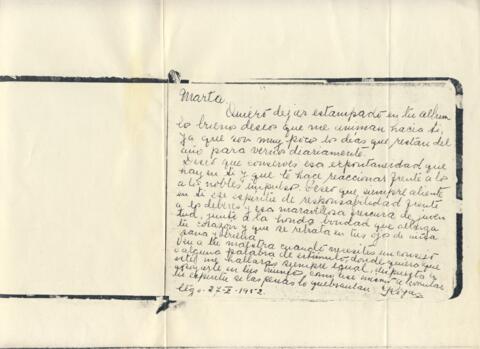 Marta,
Quiero dejar estampado en tu album
los buenos deseos que me animan hacia ti,
ya que son muy poco los días que restan del
año para vernos diariamente.
Deseo que conserves esa espontaneidad que
hay en ti y que te hace reaccionar frente a lo
a los nobles impulsos. Deseo que siempre aliente
en ti ese espíritu de responsabilidad frente
a los deberes y esa maravillosa frescura de juven
tud, junto a la honda bondad que alberga
tu corazón y que se retrata en tus ojos de niña
sana y buena.
Ven a tu maestra cuando necesites un consejo
o alguna palabra de estímulo, donde quiera que
esté me hallarás siempre igual, dispuesta a
apoyarte en tus triunfos, como asi mismo a
tu espíritu si las penas lo quebrantan.
27-X-1952.